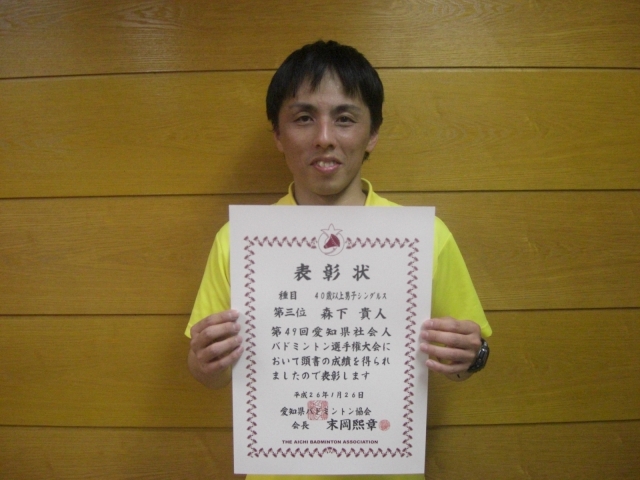 表彰状
種目 40歳以上男子シングルス
第三位 森下貴人
第49回愛知県社会人
バドミントン選手権大会に
おいて頭書の成績を得られ
ましたので表彰します
平成26年1月26日
愛知県バドミントン協会
会長 末岡熙章
THE AICHI BADMINTON ASSOCIATION